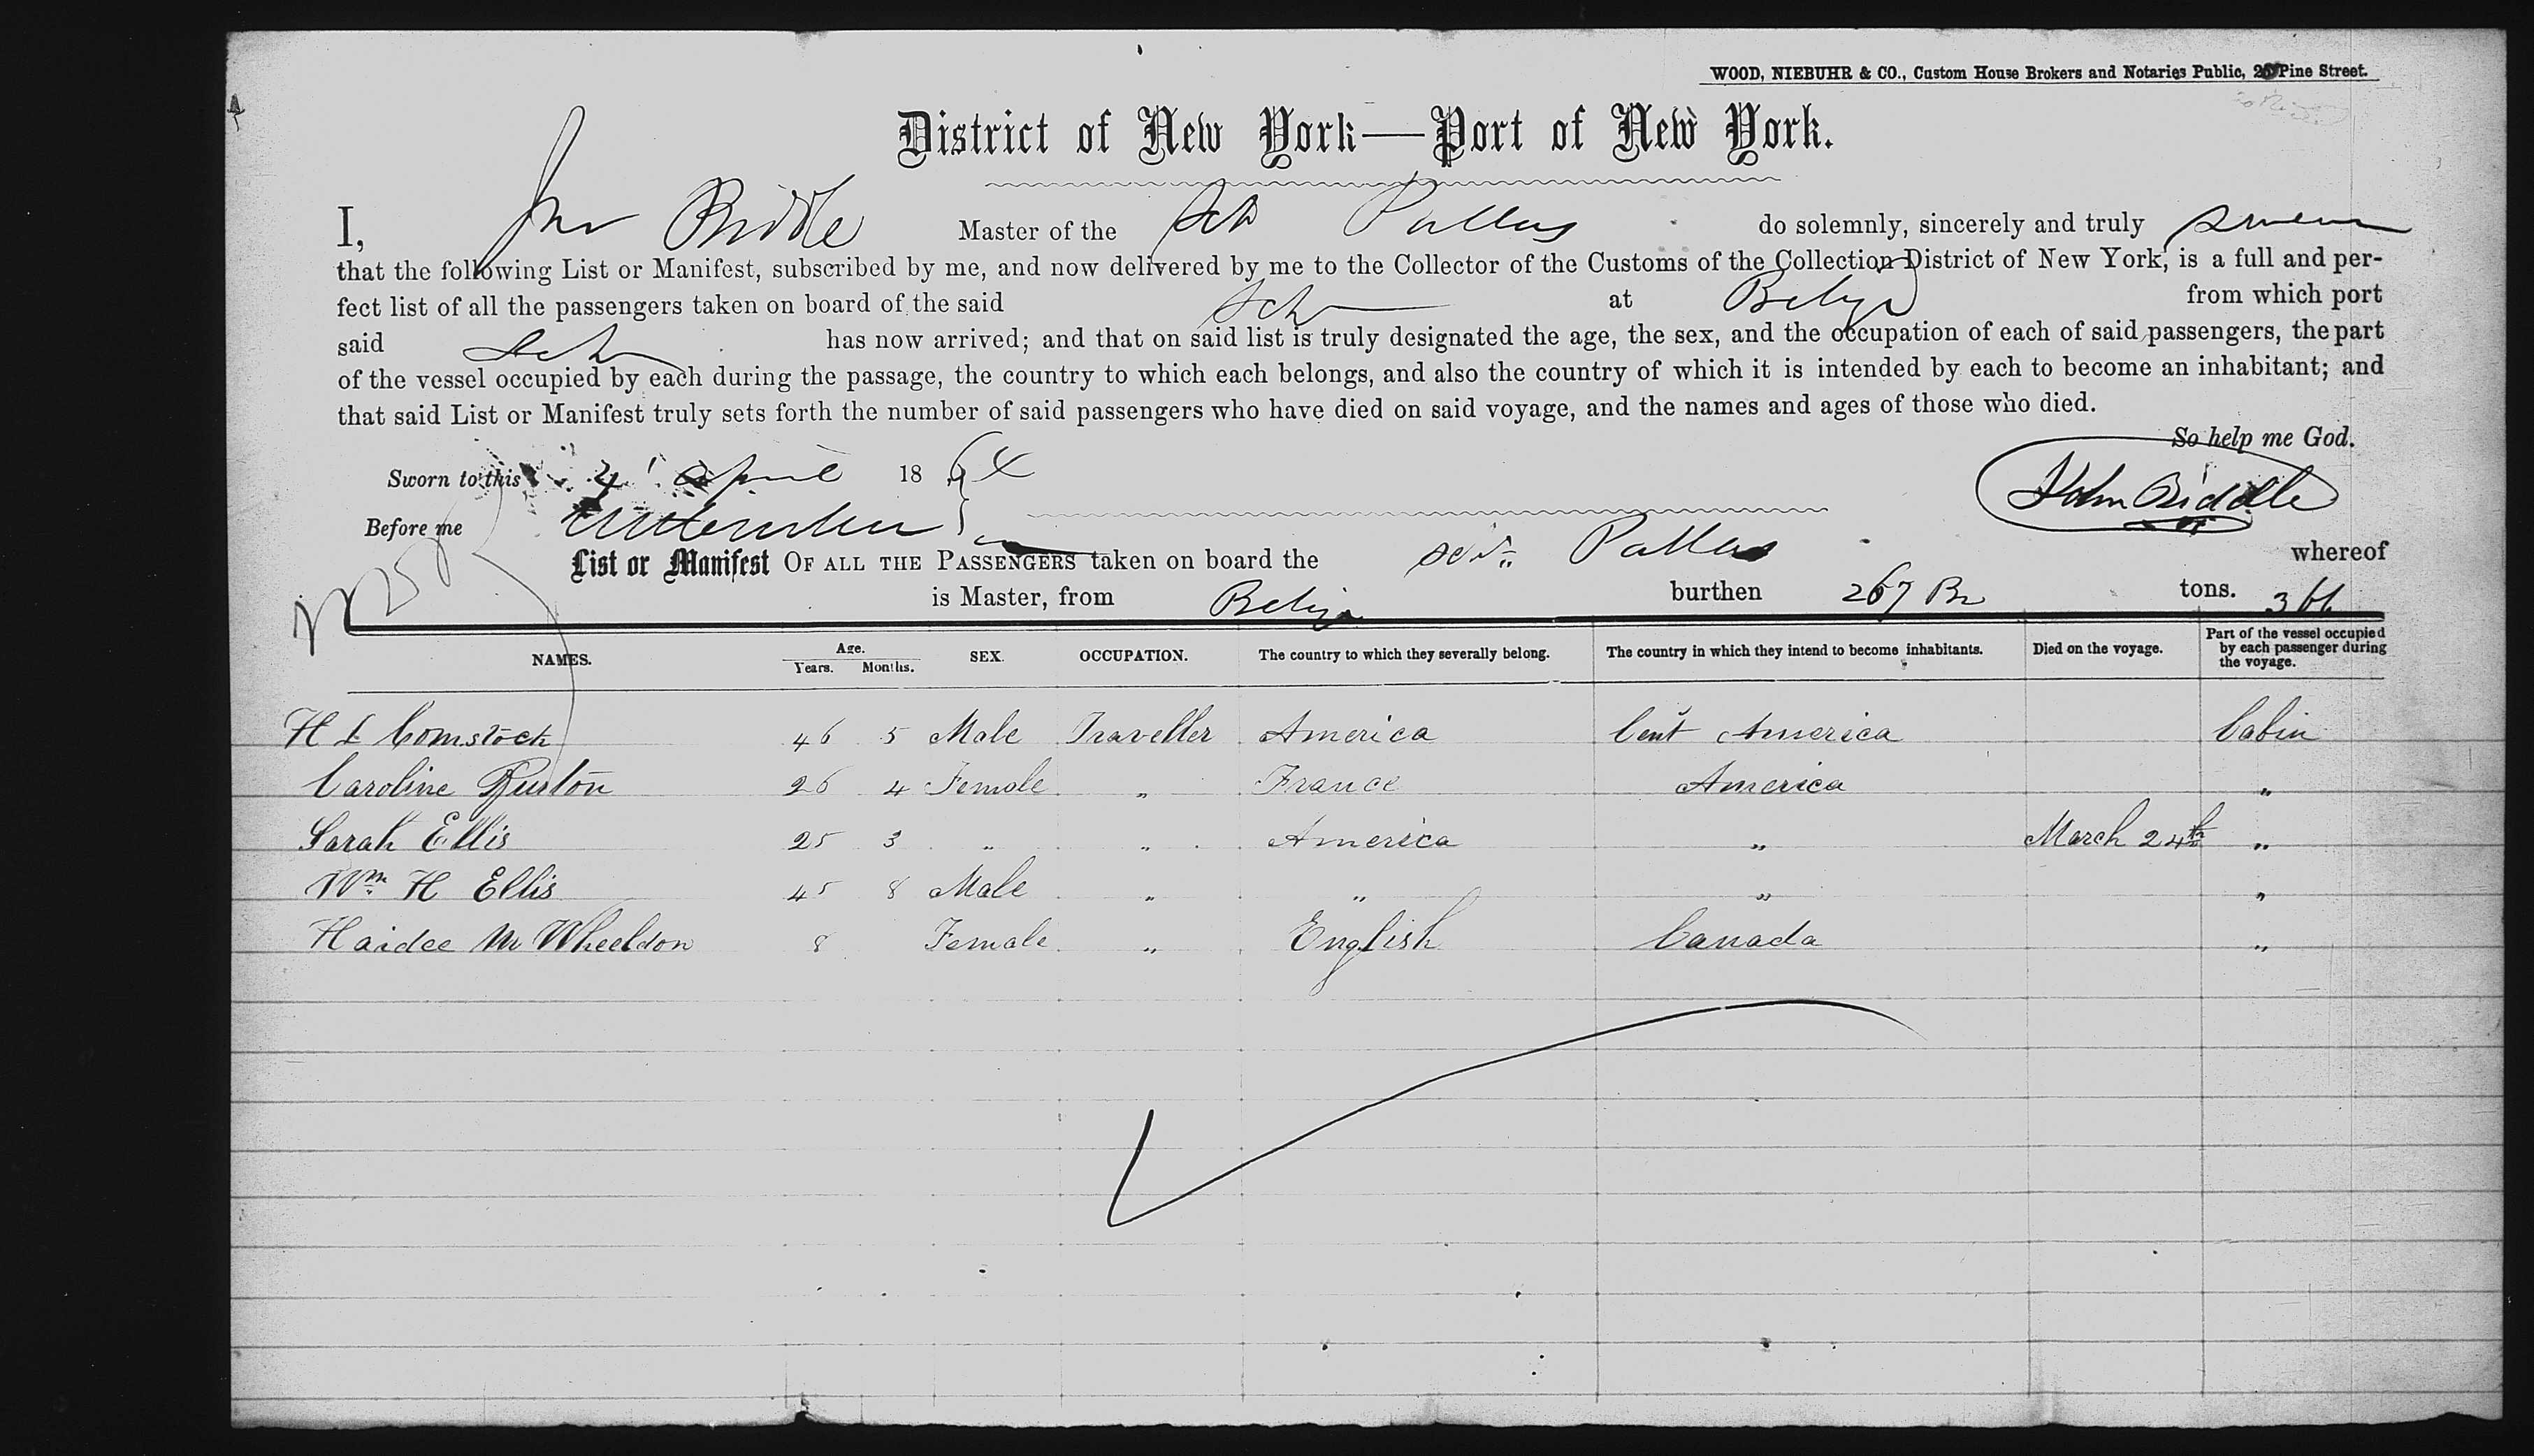 WOOD, NIEBUHR & CO., Custom House Brokers and Notaries Public, Pine Street.
District of New York—Port of New York.
I, Jno Biddle Master of the Sch Pallas do solemnly, sincerely and truly swear
that the following List or Manifest, subscribed by me, and now delivered by me to the Collector of the Customs of the Collection District of New York, is a full and per-
fect list of all the passengers taken on board of the said Sch at Belize from which port
said Sch has now arrived; and that on said list is truly designated the age, the sex, and the occupation of each of said passengers, the part
of the vessel occupied by each during the passage, the country to which each belongs, and also the country of which it is intended by each to become an inhabitant; and
that said List or Manifest truly sets forth the number of said passengers who have died on said voyage, and the names and ages of those who died.
So help me God.
Sworn to this 4 April 1864
John Biddle
Before me
List or Manifest OF ALL THE PASSENGERS taken on board the Sch. Pallas whereof
is Master, from Belize burthen 267 Br tons.
NAMES. Age. Years. Months. SEX. OCCUPATION. The country to which they severally belong. The country in which they intend to become inhabitants. Died on the voyage. Part of the vessel occupied by each passenger during the voyage.
H L Comstock 46 5 Male Traveller America Cent America Cabin
Caroline 26 4 Female " France America "
Sarah Ellis 25 3 " " America " March 24th "
Wm H Ellis 45 8 Male " " " "
Haidee M Wheeldon 8 Female " English Canada "